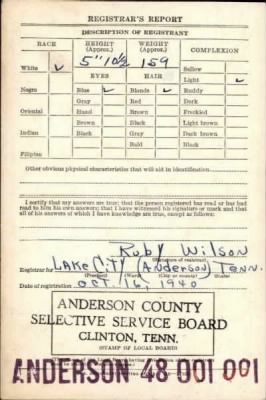 REGISTRAR'S REPORT
DESCRIPTION OF REGISTRANT
RACE HEIGHT (Approx.) WEIGHT (Approx.) COMPLEXION
White ✓ 5" 10½ 159 Sallow
EYES HAIR Light ✓
Negro Blue ✓ Blonde ✓ Ruddy
Gray Red Dark
Oriental Hazel Brown Freckled
Brown Black Light brown
Indian Black Gray Dark brown
Bald Black
Filipino
Other obvious physical characteristics that will aid in identification
I certify that my answers are true; that the person registered has read or has had read to him his own answers; that I have witnessed his signature or mark and that all of his answers of which I have knowledge are true, except as follows:
Ruby Wilson
(Signature of registrar)
Registrar for Lake City (Anderson) Tenn.
(Precinct) (Ward) (City or county) (State)
Date of registration Oct. 16, 1940
ANDERSON COUNTY
SELECTIVE SERVICE BOARD
CLINTON, TENN.
(STAMP OF LOCAL BOARD)
ANDERSON 48 001 001